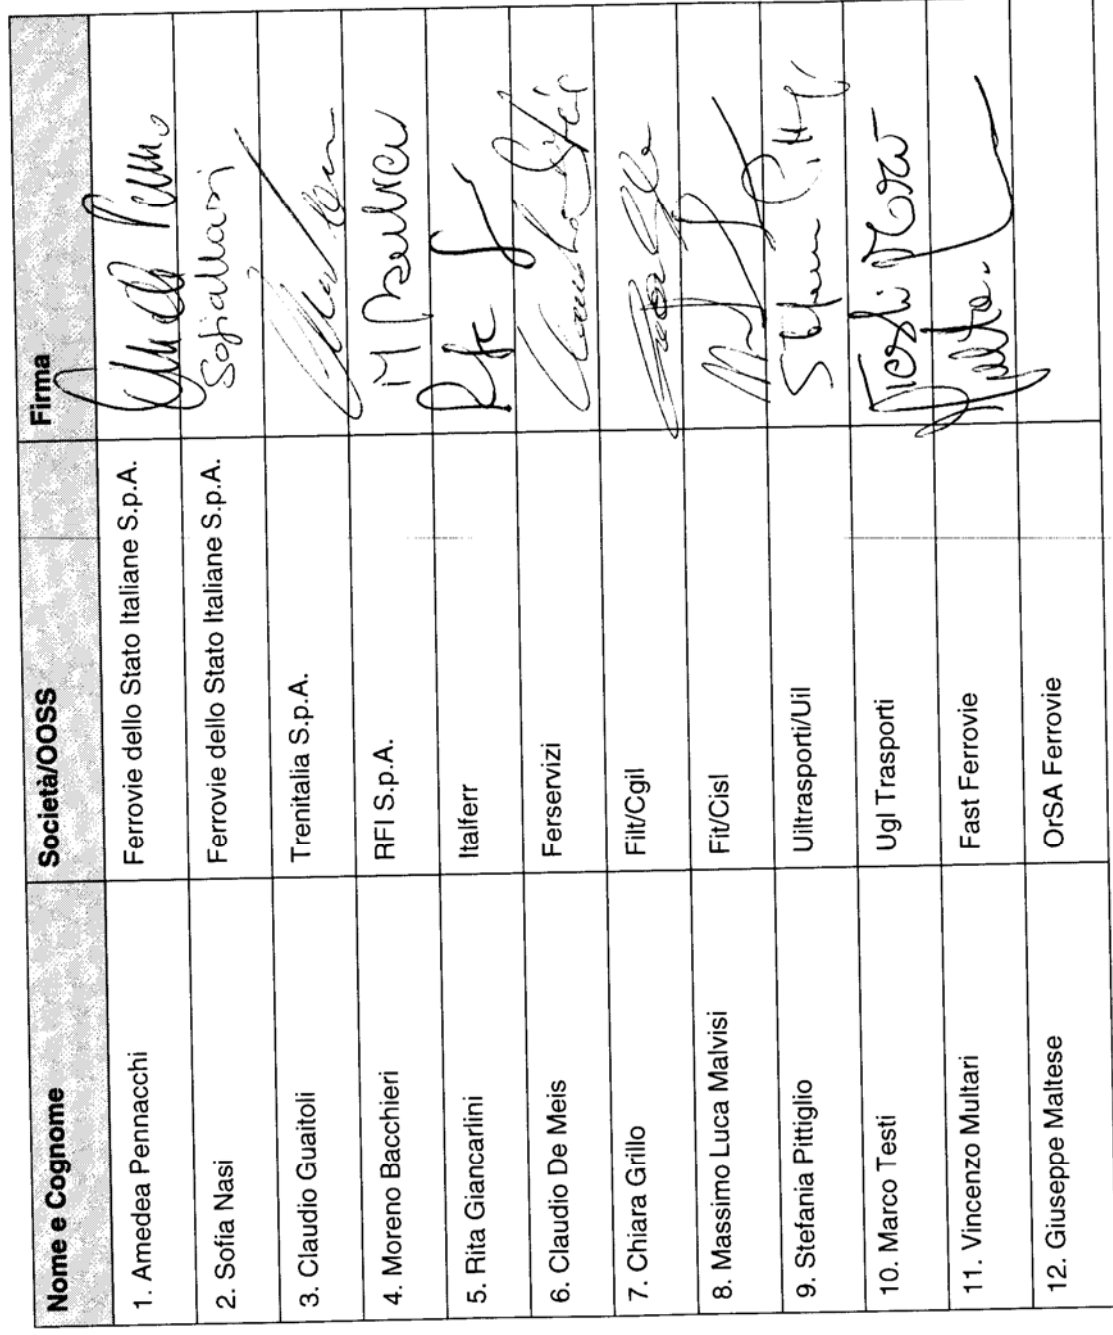 Nome e Cognome Società/OOSS Firma
1. Amedea Pennacchi Ferrovie dello Stato Italiane S.p.A.
2. Sofia Nasi Ferrovie dello Stato Italiane S.p.A. Sofia Nasi
3. Claudio Guaitoli Trenitalia S.p.A.
4. Moreno Bacchieri RFI S.p.A.
5. Rita Giancarlini Italferr
6. Claudio De Meis Ferservizi
7. Chiara Grillo Filt/Cgil
8. Massimo Luca Malvisi Fit/Cisl
9. Stefania Pittiglio Uiltrasporti/Uil
10. Marco Testi Ugl Trasporti
11. Vincenzo Multari Fast Ferrovie
12. Giuseppe Maltese OrSA Ferrovie